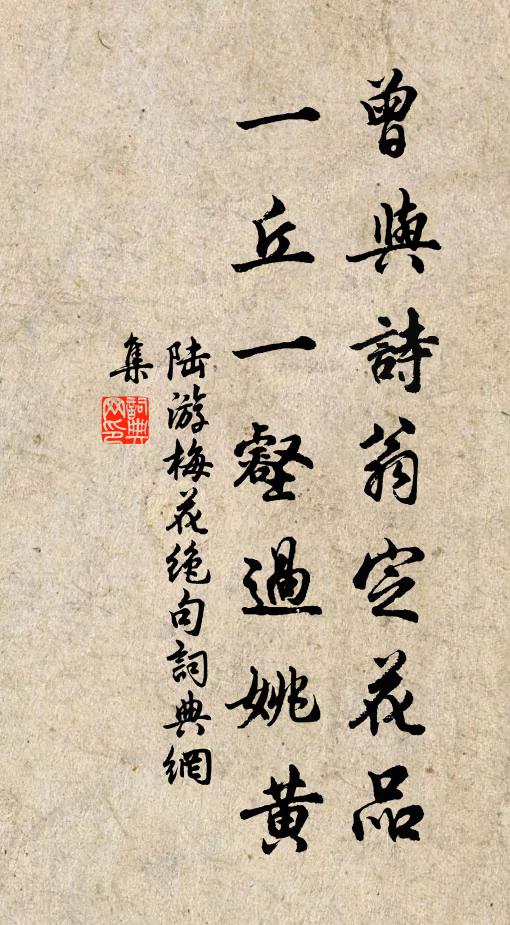 曾與詩翁定花品
一丘一壑過姚黄
陸游梅花绝句詞典網
集
詞典
网印